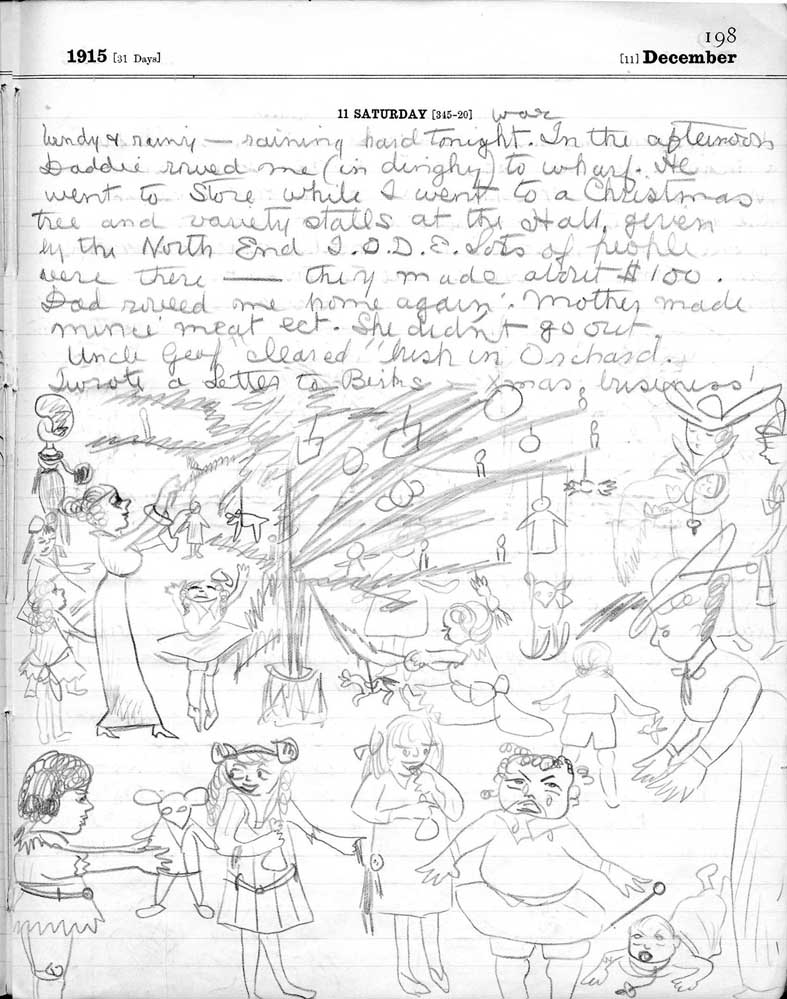 198
1915 [31 Days] [11] December
11 SATURDAY [345-20] war
Windy & rainy — raining hard tonight. In the afternoon
Daddie rowed me (in dinghy) to wharf. He
went to Store while I went to a Christmas
tree and variety stalls at the Hall, given
by the North End I.O.D.E. Lots of people
were there — they made about $100.
Dad rowed me home again. Mother made
mince meat ect. She didn't go out.
Uncle Geof "cleared" bush in Orchard.
I wrote a letter to Birks — Xmas business!